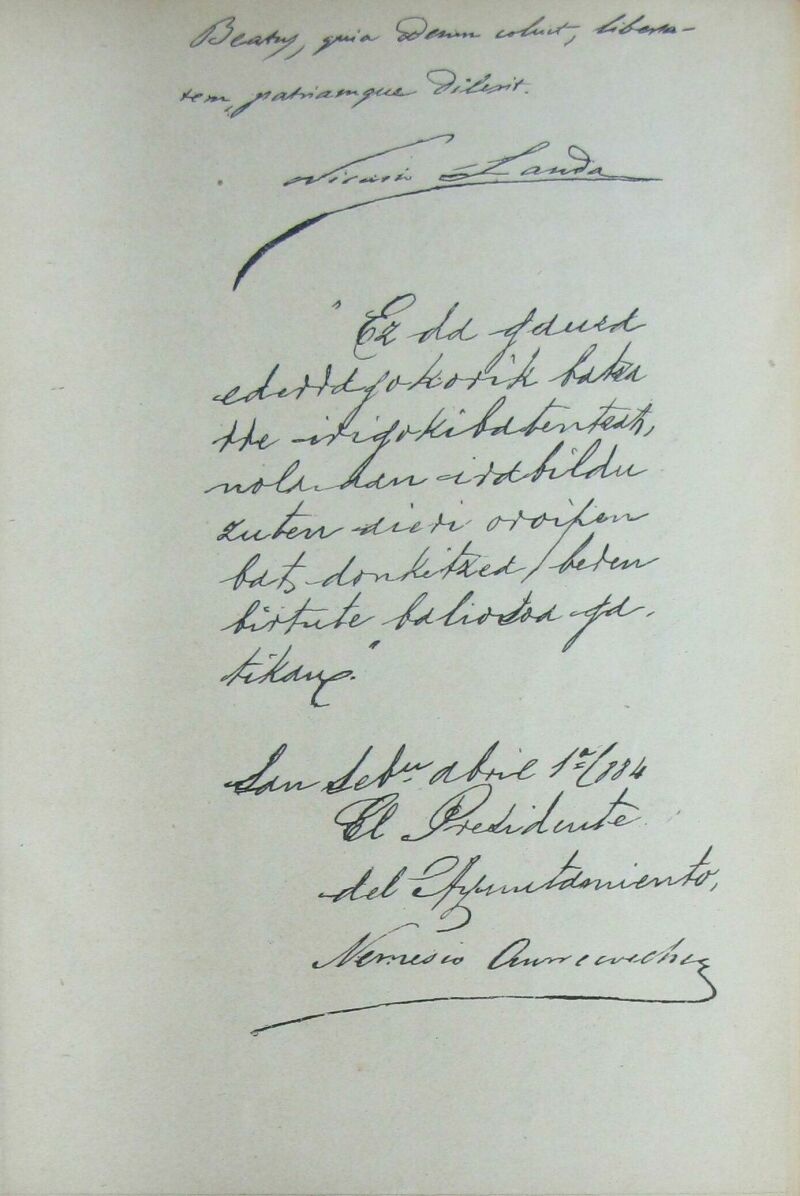 Beatus, quia Deum coluit, liberta-
tem, patriamque dilexit.
Nicasio Landa
"Ez da gauza
ederragokorik batza
rre irigokibatentzat,
nola aan irabildu
zuten aieri oroipen
bat donkitzea, beren
birtute baliosoa ga-
tikan."
San Sebn abril 1º/884
El Presidente
del Ayuntamiento,
Nemesio Aurrecoechea